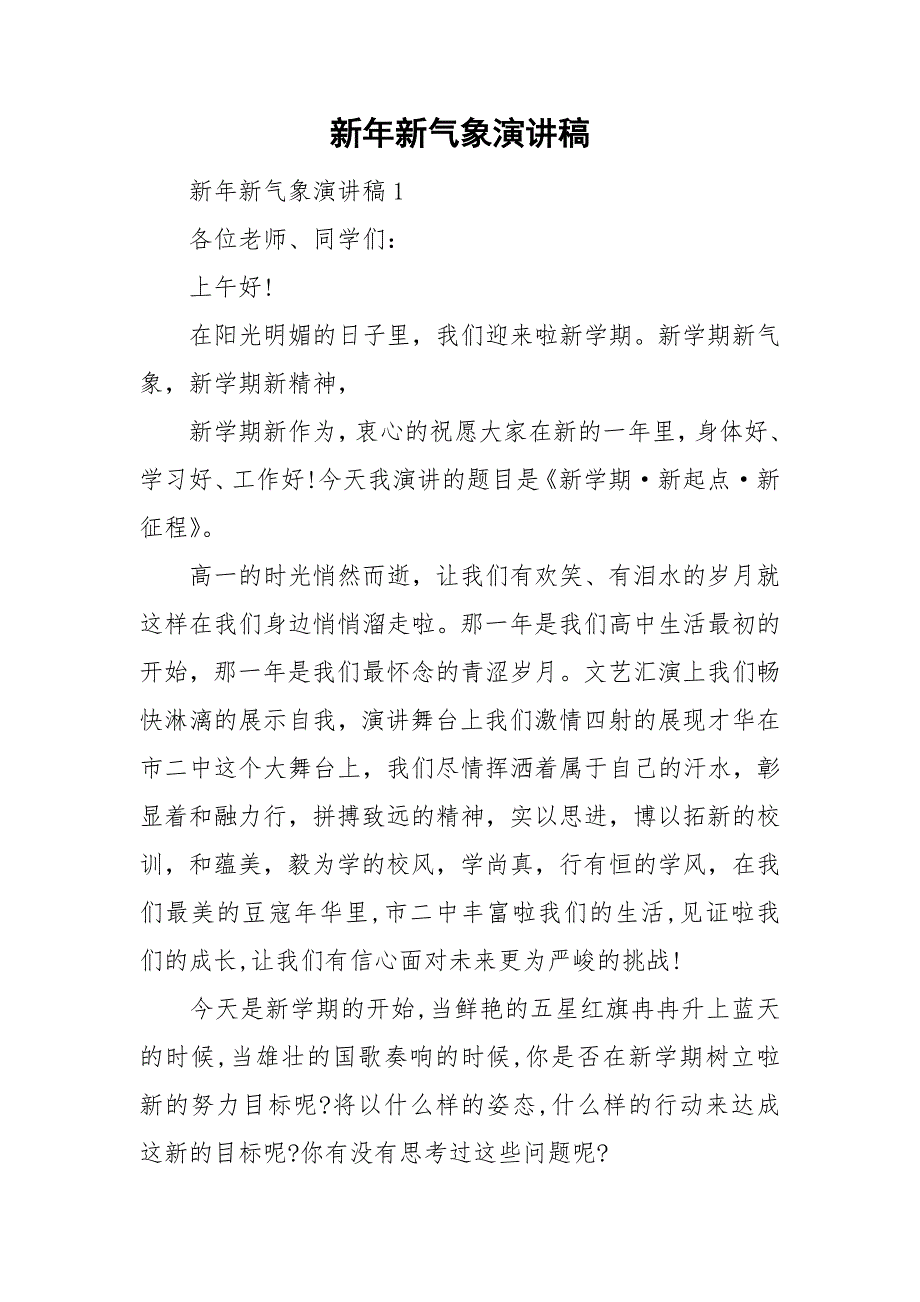 新年新气象演讲稿
新年新气象演讲稿1
各位老师、同学们:
上午好!
在阳光明媚的日子里，我们迎来啦新学期。新学期新气
象，新学期新精神，
新学期新作为，衷心的祝愿大家在新的一年里，身体好、
学习好、工作好!今天我演讲的题目是《新学期·新起点·新
征程》。
高一的时光悄然而逝，让我们有欢笑、有泪水的岁月就
这样在我们身边悄悄溜走啦。那一年是我们高中生活最初的
开始，那一年是我们最怀念的青涩岁月。文艺汇演上我们畅
快淋漓的展示自我，演讲舞台上我们激情四射的展现才华在
市二中这个大舞台上，我们尽情挥洒着属于自己的汗水，彰
显着和融力行，拼搏致远的精神，实以思进，博以拓新的校
训，和蕴美，毅为学的校风，学尚真，行有恒的学风，在我
们最美的豆寇年华里,市二中丰富啦我们的生活,见证啦我
们的成长,让我们有信心面对未来更为严峻的挑战!
今天是新学期的开始,当鲜艳的五星红旗冉冉升上蓝天
的时候,当雄壮的国歌奏响的时候,你是否在新学期树立啦
新的努力目标呢?将以什么样的姿态,什么样的行动来达成
这新的目标呢?你有没有思考过这些问题呢?